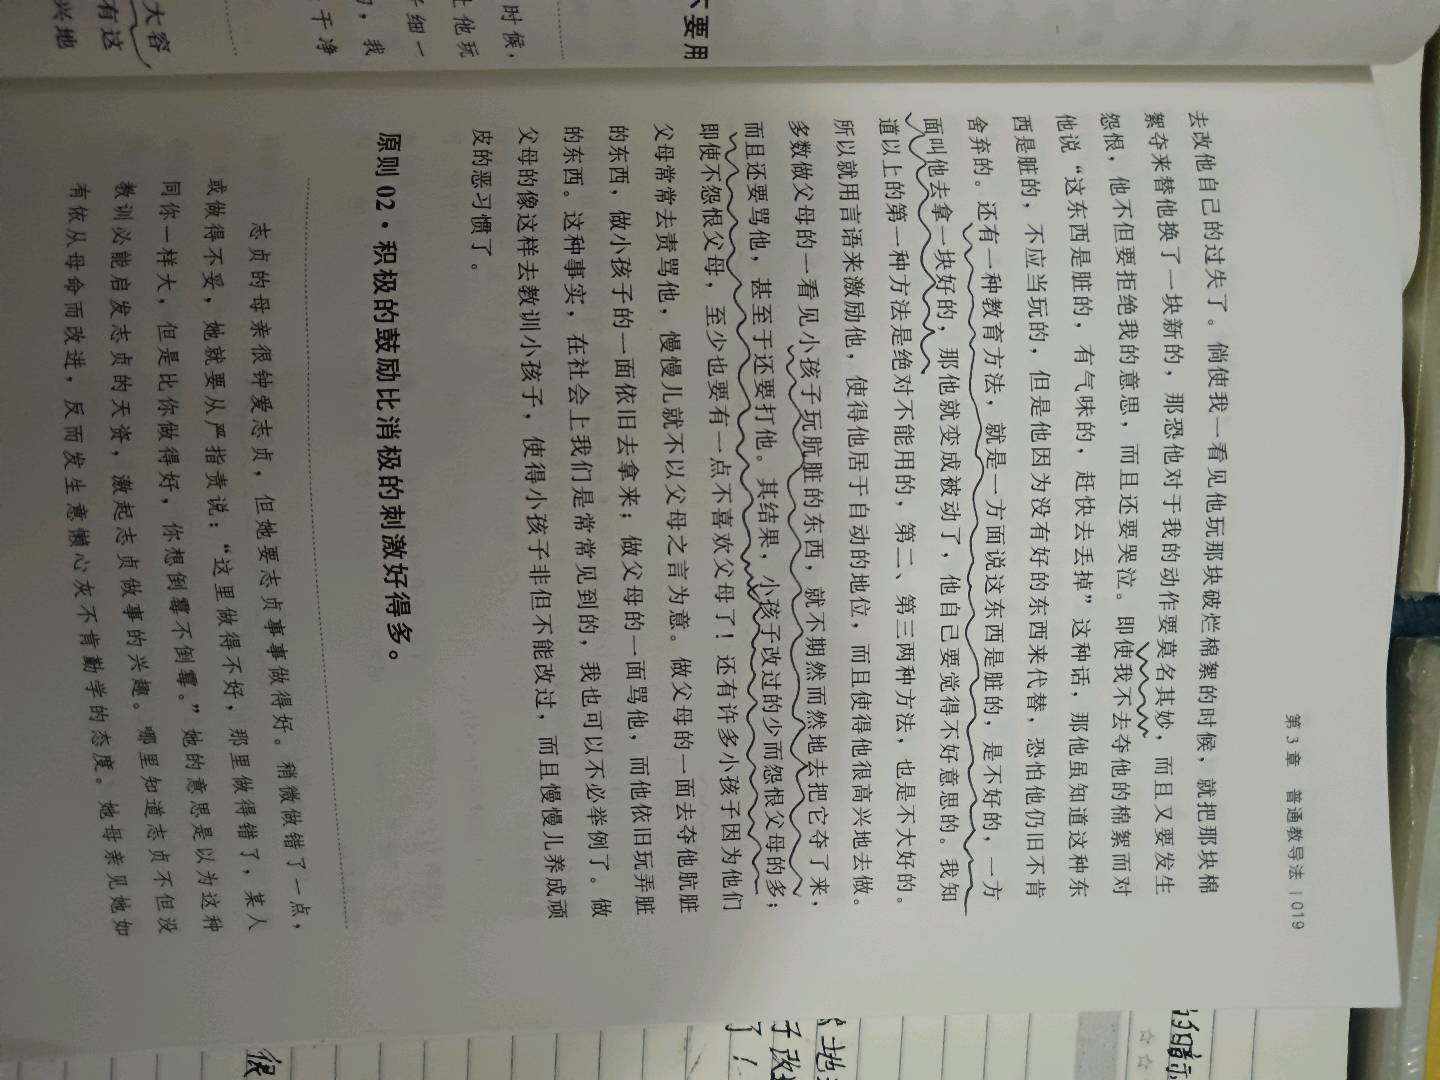 第3章 普通教导法 | 019
去改他自己的过失了。倘使我一看见他玩那块破烂棉絮的时候，就把那块棉
絮夺来替他换了一块新的，那恐他对于我的动作要莫名其妙，而且又要发生
怨恨，他不但要拒绝我的意思，而且还要哭泣。即使我不去夺他的棉絮而对
他说“这东西是脏的，有气味的，赶快去丢掉”这种话，那他虽知道这种东
西是脏的，不应当玩的，但是他因为没有好的东西来代替，恐怕他仍旧不肯
舍弃的。还有一种教育方法，就是一方面说这东西是脏的，是不好的，一方
面叫他去拿一块好的，那他就变成被动了，他自己要觉得不好意思的。我知
道以上的第一种方法是绝对不能用的，第二、第三两种方法，也是不大好的。
所以就用言语来激励他，使得他居于自动的地位，而且使得他很高兴地去做。
多数做父母的一看见小孩子玩肮脏的东西，就不期然而然地去把它夺了来，
而且还要骂他，甚至于还要打他。其结果，小孩子改过的少而怨恨父母的多；
即使不怨恨父母，至少也要有一点不喜欢父母了！还有许多小孩子因为他们
父母常常去责骂他，慢慢儿就不以父母之言为意。做父母的一面去夺他肮脏
的东西，做小孩子的一面依旧去拿来；做父母的一面骂他，而他依旧玩弄脏
的东西。这种事实，在社会上我们是常常见到的，我也可以不必举例了。做
父母的像这样去教训小孩子，使得小孩子非但不能改过，而且慢慢儿养成顽
皮的恶习惯了。
原则 02·积极的鼓励比消极的刺激好得多。
志贞的母亲很钟爱志贞，但她要志贞事事做得好。稍微做错了一点，
或做得不妥，她就要从严指责说：“这里做得不好，那里做得错了，某人
同你一样大，但是比你做得好，你想倒霉不倒霉。”她的意思是以为这种
教训必能启发志贞的天资，激起志贞做事的兴趣。哪里知道志贞不但没
有依从母命而改进，反而发生意懒心灰不肯勤学的态度。她母亲见她如
要用
时候，
他玩
细一
，我
干净
大容
有这
兴地
子改
了！
很